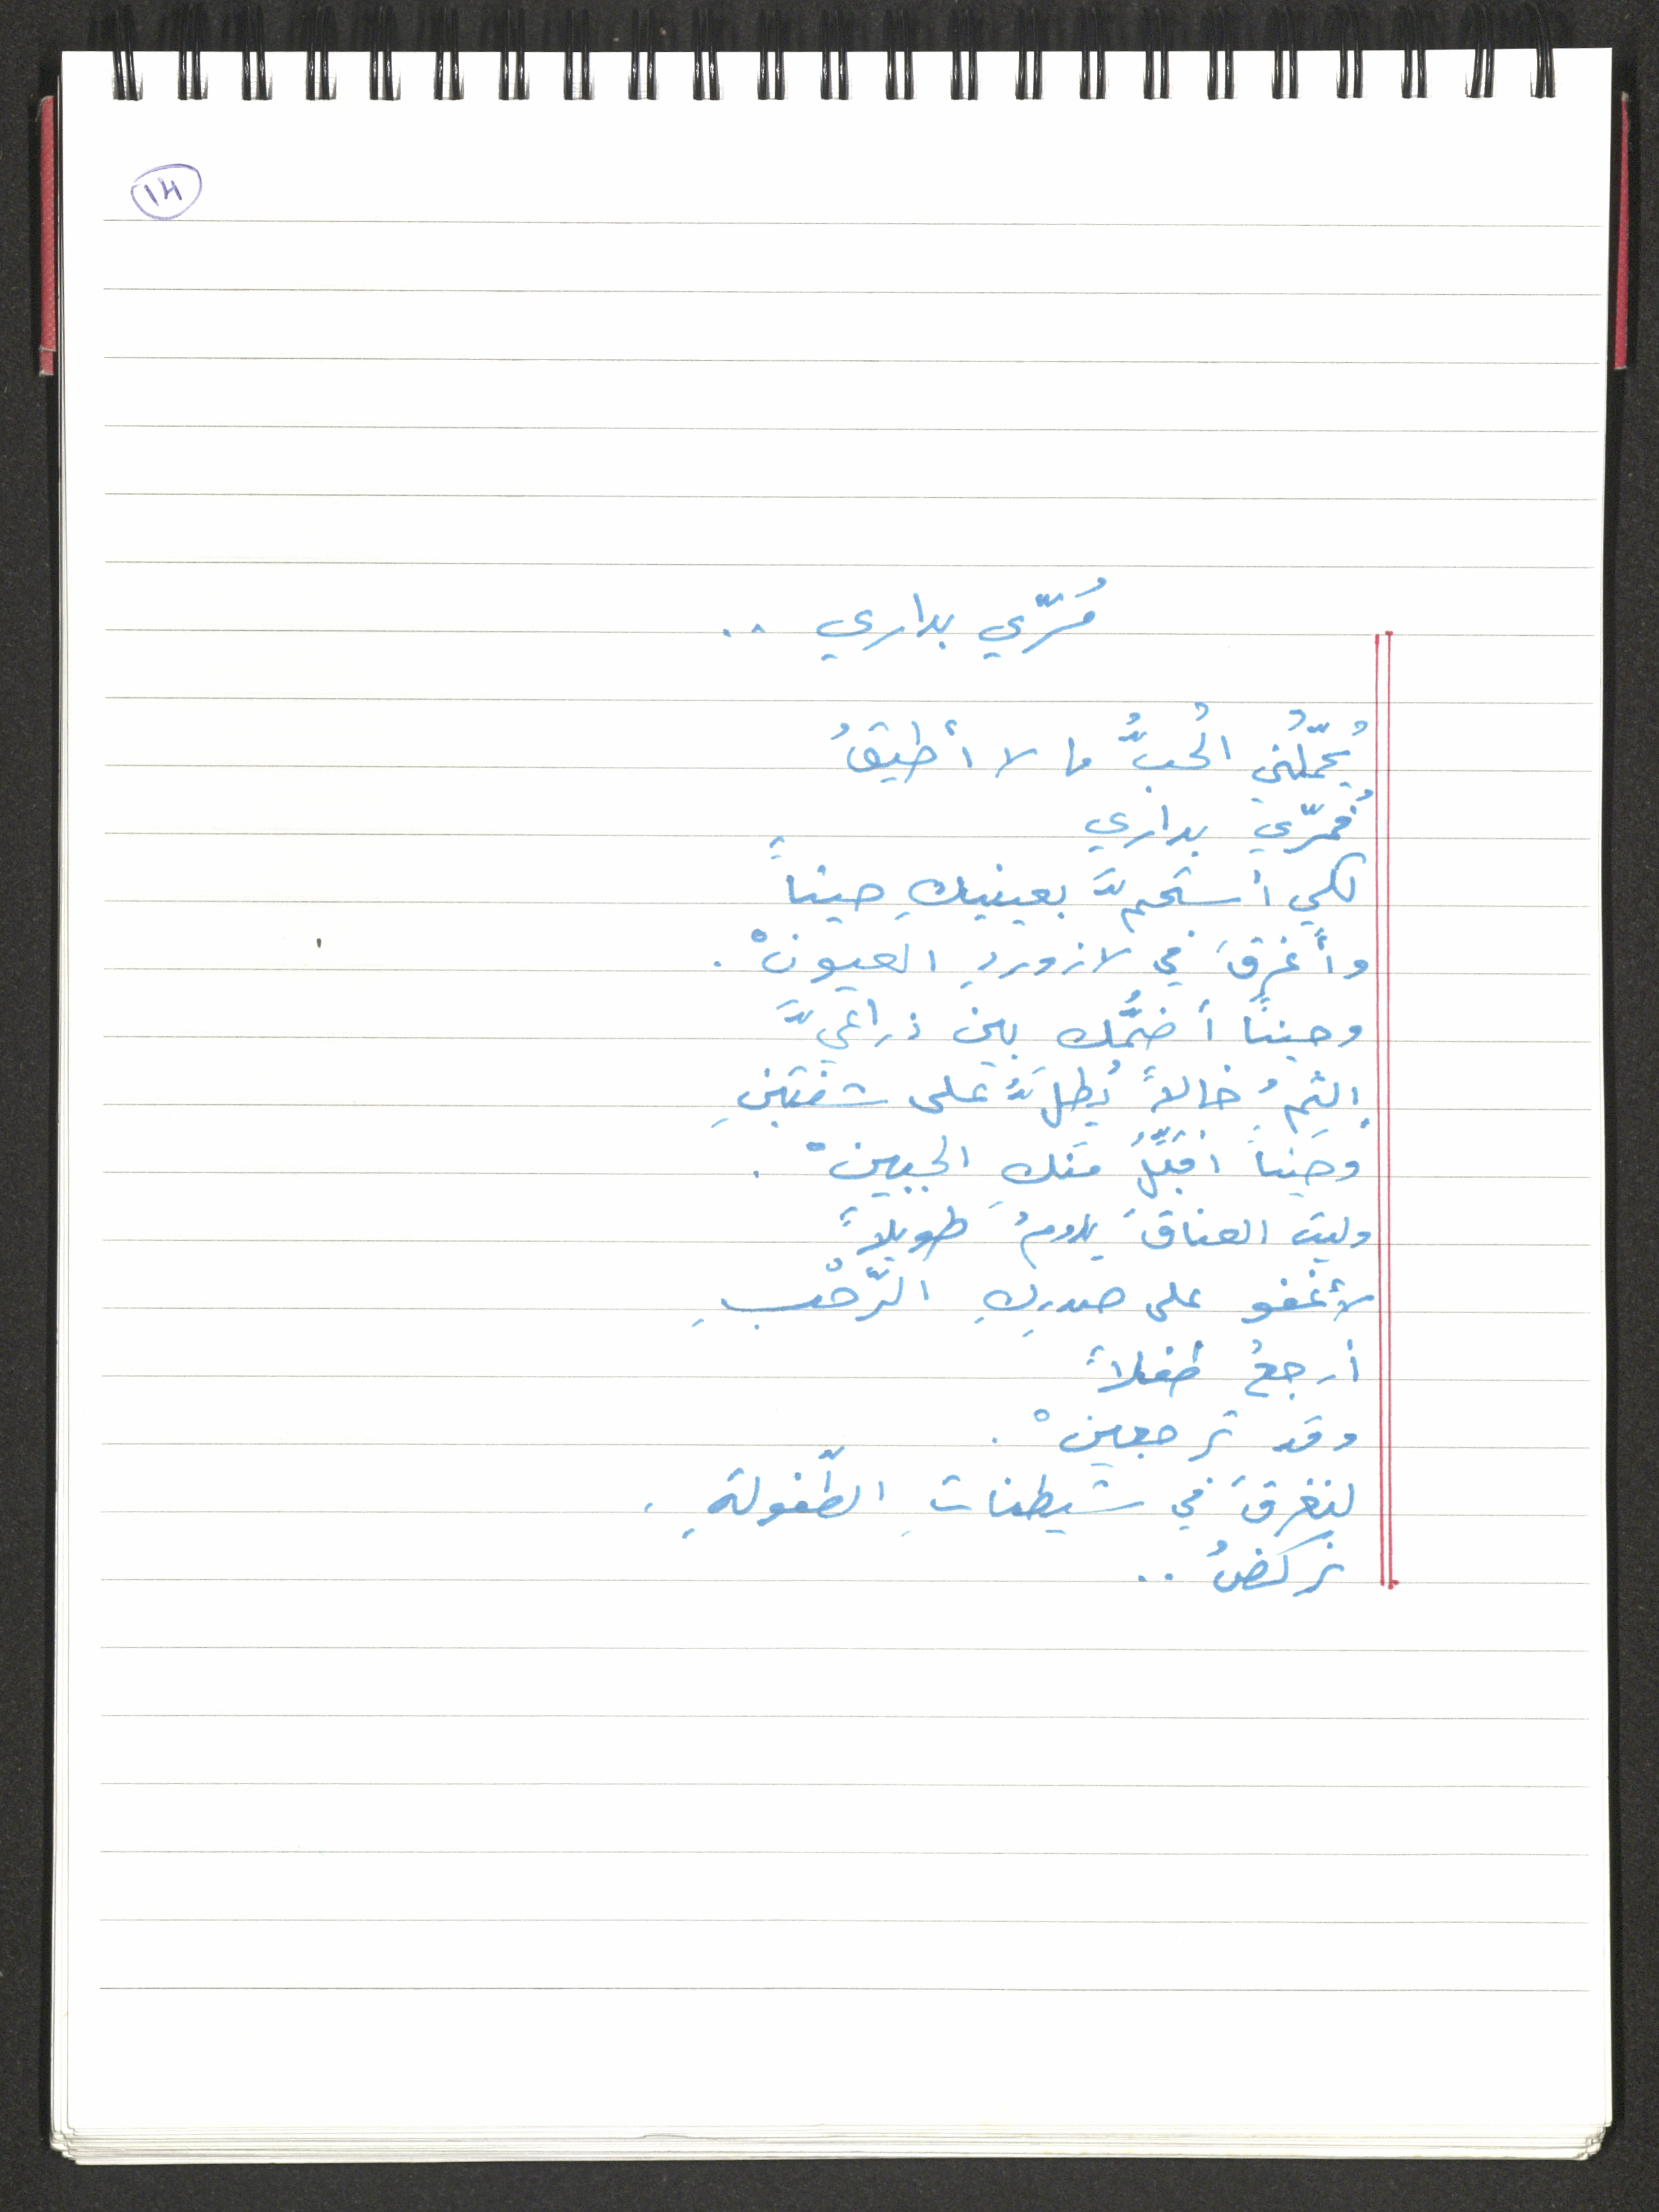 ١٣
مُرّي بداري ..
يُحمّلُني الحُبُّ ما لا أُطيقُ
فمُرّي بداري
لكي أستَحمَّ بعينيكِ حيناً
وأَغرقَ في لازوردِ العيونْ .
وحيناً أضمُّك بين ذراعيَّ
ألثمُ خالاً يُطلُّ على شفتَينِ
وحيناً أقبِّلُ منكِ الجبينْ .
وليتَ العناقَ يدومُ طويلاً
لأغفو على صدركِ الرَّحْبِ
أرجعُ طفلاً
وقد ترجعينْ .
لنغرقَ في شيطناتِ الطّفولةِ ،
نركضُ ..